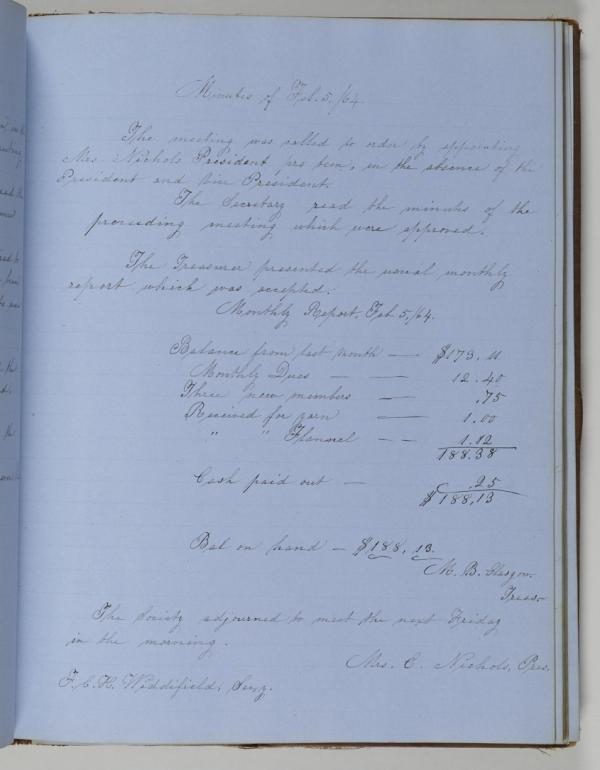 Minutes of Feb. 5, /64.
The meeting was called to order by appointing
Mrs. Nichols President, pro tem, in the absence of the
President and Vice President.
The Secretary read the minutes of the
preceding meeting which were approved.
The Treasurer presented the usual monthly
report which was accepted.
Monthly Report, Feb. 5, /64.
Balance from last month — $173.11
Monthly Dues — — 12.40
Three new members — .75
Received for yarn — 1.00
" " Flannel — — 1.12
188.38
Cash paid out — .25
$188.13
Bal on hand — $188.13.
M. B. Glasgow.
Treas.
The Society adjourned to meet the next Friday
in the morning.
Mrs. C. Nichols, Pres.
F. C. H. Widdifield, Secy.